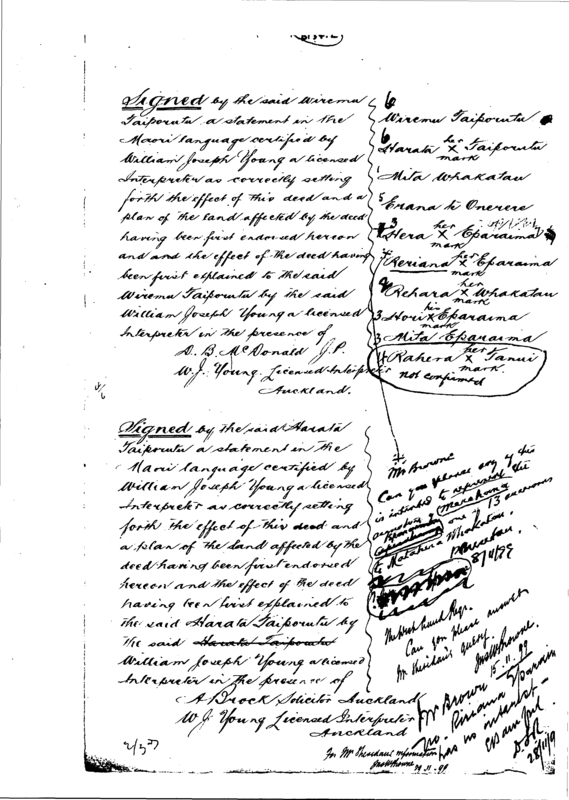 Signed by the said Wiremu
Taiporutu a statement in the
Maori language certified by
William Joseph Young a licensed
Interpreter as correctly setting
forth the effect of this deed and a
plan of the land affected by the deed
having been first endorsed hereon
and and the effect of the deed having
been first explained to the said
Wiremu Taiporutu by the said
William Joseph Young a licensed
Interpreter in the presence of
D. B. McDonald J.P.
W. J. Young. Licensed Interpreter
Auckland.
Signed by the said Harata
Taiporutu a statement in the
Maori language certified by
William Joseph Young a licensed
Interpreter as correctly setting
forth the effect of this deed and
a plan of the land affected by the
deed having been first endorsed
hereon and the effect of the deed
having been first explained to
the said Harata Taiporutu by
the said Harata Taiporutu
William Joseph Young a licensed
Interpreter in the presence of
A Brock Solicitor Auckland
W. J. Young Licensed Interpreter
Auckland
6
Wiremu Taiporutu
6
Harata her X mark Taiporutu
1 Mita Whakatau
5 Erana te Onerere
3 Hera her X mark Eparaima
Reriana her X mark Eparaima
Rehara her X mark Whakatau
3 Hori his X mark Eparaima
3 Mita Eparaima
4 Rahera her X mark Tanui
not confirmed
Mr Browne
Can you please say if this
is intended to represent the
signature of
one of 13 successors
to Matahera Whakatau.
8/11/99
Can you please answer
Mr query.
15.11.99
Mr Brown
no. Ririana Eparaima
has no interest
28/11/9
For Mr information
29.11.99